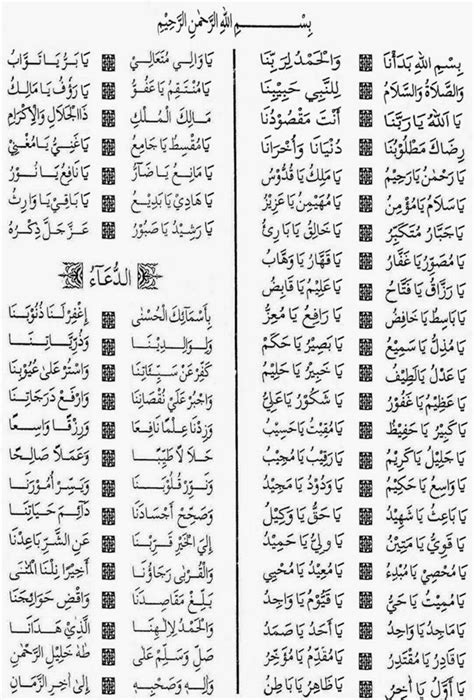 بِسْــــمِ اللهِ الرَّحْمٰنِ الرَّحِيْمِ
بِسْمِ اللهِ بَدَأْنَا وَالْحَمْدُ لِرَبِّنَا
وَالصَّلَاةُ وَالسَّلَامُ لِلنَّبِيِّ حَبِيْبِنَا
يَا اَللهُ يَا رَبَّنَا أَنْتَ مَقْصُوْدُنَا
رِضَاكَ مَطْلُوْبُنَا دُنْيَانَا وَأُخْرَانَا
يَا رَحْمٰنُ يَا رَحِيْمُ يَا مَلِكُ يَا قُدُّوْسُ
يَا سَلَامُ يَا مُؤْمِنُ يَا مُهَيْمِنُ يَا عَزِيْزُ
يَا جَبَّارُ يَا مُتَكَبِّرُ يَا خَالِقُ يَا بَارِئُ
يَا مُصَوِّرُ يَا غَفَّارُ يَا قَهَّارُ يَا وَهَّابُ
يَا رَزَّاقُ يَا فَتَّاحُ يَا عَلِيْمُ يَا قَابِضُ
يَا بَاسِطُ يَا خَافِضُ يَا رَافِعُ يَا مُعِزُّ
يَا مُذِلُّ يَا سَمِيْعُ يَا بَصِيْرُ يَا حَكَمُ
يَا عَدْلُ يَا لَطِيْفُ يَا خَبِيْرُ يَا حَلِيْمُ
يَا عَظِيْمُ يَا غَفُوْرُ يَا شَكُوْرُ يَا عَلِيُّ
يَا كَبِيْرُ يَا حَفِيْظُ يَا مُقِيْتُ يَا حَسِيْبُ
يَا جَلِيْلُ يَا كَرِيْمُ يَا رَقِيْبُ يَا مُجِيْبُ
يَا وَاسِعُ يَا حَكِيْمُ يَا وَدُوْدُ يَا مَجِيْدُ
يَا بَاعِثُ يَا شَهِيْدُ يَا حَقُّ يَا وَكِيْلُ
يَا قَوِيُّ يَا مَتِيْنُ يَا وَلِيُّ يَا حَمِيْدُ
يَا مُحْصِيْ يَا مُبْدِءُ يَا مُعِيْدُ يَا مُحْيِيْ
يَا مُمِيْتُ يَا حَيُّ يَا قَيُّوْمُ يَا وَاجِدُ
يَا مَاجِدُ يَا وَاحِدُ يَا أَحَدُ يَا صَمَدُ
يَا قَادِرُ يَا مُقْتَدِرُ يَا مُقَدِّمُ يَا مُؤَخِّرُ
يَا أَوَّلُ يَا أٰخِرُ يَا ظَاهِرُ يَا بَاطِنُ
يَا وَالِيْ مُتَعَالِيْ يَا بَرُّ يَا تَوَّابُ
يَا مُنْتَقِمُ يَا عَفُوُّ يَا رَؤُفُ يَا مَالِكُ
مَالِكَ الْمُلْكِ ذَا الْجَلَالِ وَالْإِكْرَامِ
يَا مُقْسِطُ يَا جَامِعُ يَا غَنِيُّ يَا مُغْنِيْ
يَا مَانِعُ يَا ضَآرُّ يَا نَافِعُ يَا نُوْرُ
يَا هَادِيْ يَا بَدِيْعُ يَا بَاقِيْ يَا وَارِثُ
يَا رَشِيْدُ يَا صَبُوْرُ عَزَّ جَلَّ ذِكْرُهُ
الدُّعَآءُ
بِأَسْمَائِكَ الْحُسْنٰى إِغْفِرْ لَنَا ذُنُوْبَنَا
وَلِوَالِدِيْنَا وَذُرِّيَّاتِنَا
كَفِّرْ عَنْ سَيِّئَاتِنَا وَاسْتُرْ عَلٰى عُيُوْبِنَا
وَاجْبُرْ عَلٰى نُقْصَانِنَا وَارْفَعْ دَرَجَاتِنَا
وَزِدْنَا عِلْمًا نَافِعًا وَرِزْقًا وَاسِعًا
حَلَالًا طَيِّبًا وَعَمَلًا صَالِحًا
وَنَوِّرْ قُلُوْبَنَا وَيَسِّرْ أُمُوْرَنَا
وَصَحِّحْ أَجْسَادَنَا دَآئِمَ حَيَاتِنَا
إِلَى الْخَيْرِ قَرِّبْنَا عَنِ الشَّرِّ بَاعِدْنَا
وَالْقُرْبٰى رَجَاؤُنَا أَخِيْرًا نِلْنَا الْمُنٰى
بَلِّغْ مَقَاصِدَنَا وَاقْضِ حَوَائِجَنَا
وَالْحَمْدُ لِإِلٰهِنَا الَّذِيْ هَدَانَا
صَلِّ وَسَلِّمْ عَلٰى طٰهٰ خَلِيْلِ الرَّحْمٰنِ
وَأٰلِهِ وَصَحْبِهِ إِلٰى أٰخِرِ الزَّمَانِ